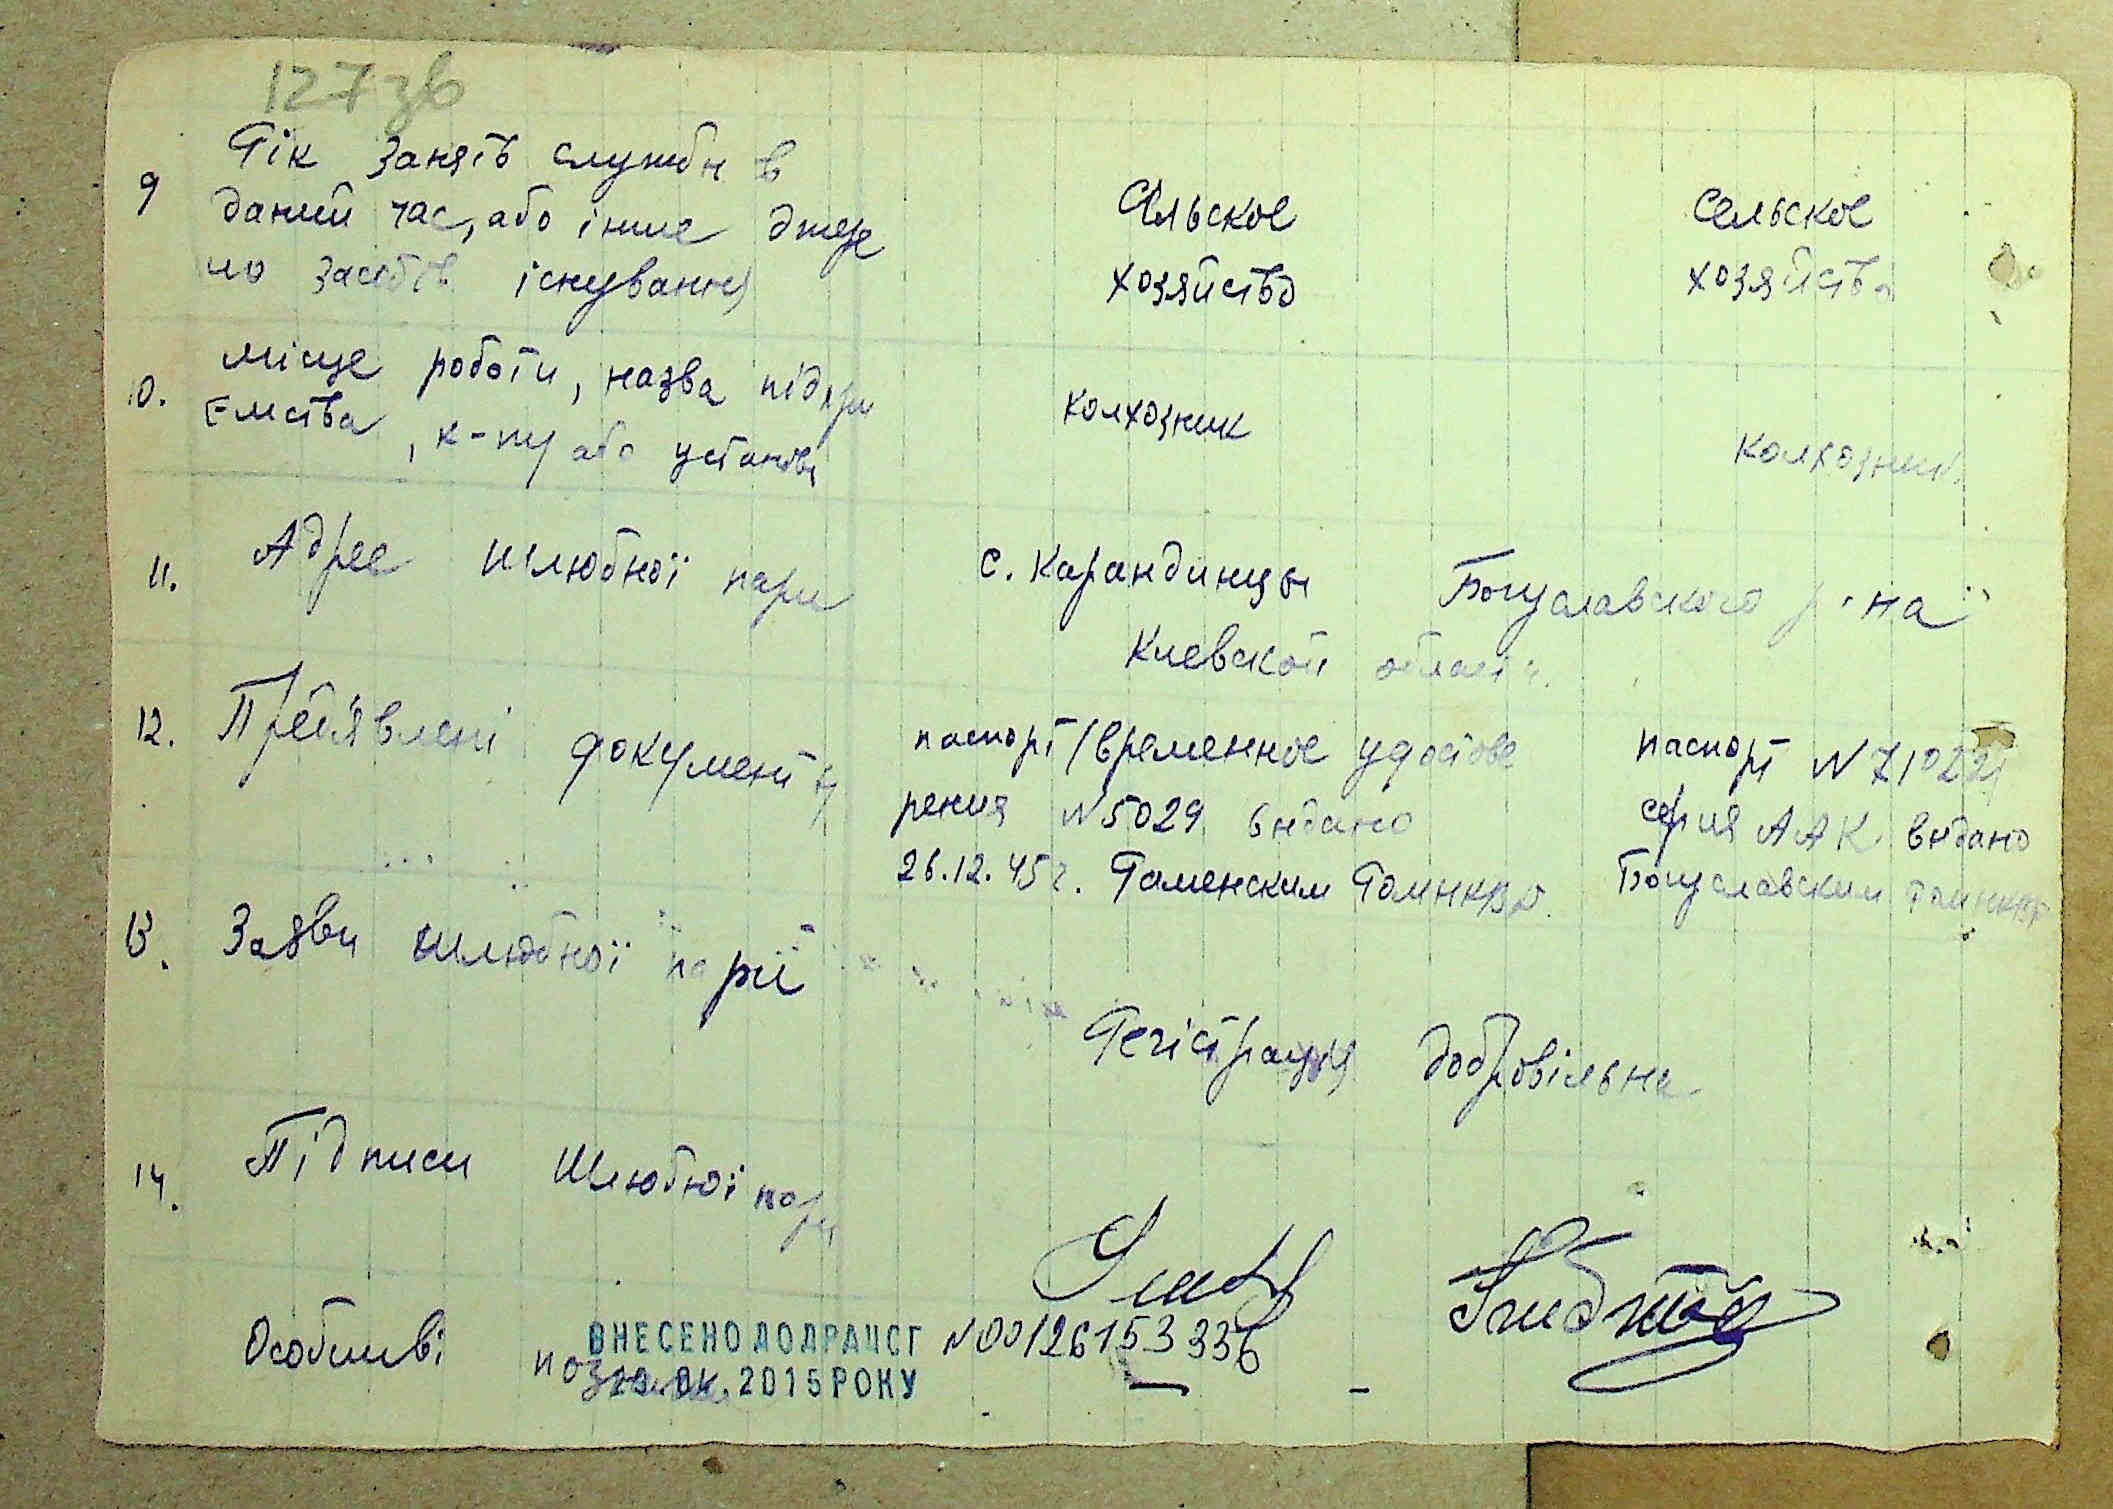 127зв
9 Рік занять служби в
даний час, або інше джере
ло засобів існування
Сельское
хозяйство
Сельское
хозяйство
10. Місце роботи, назва підпри
ємства, к-пу або установи
колхозник
колхозник
11. Адрес шлюбної пари
с. Карандинцы Богуславского р-на
Киевской области.
12. Пред'явлені документи
паспорт /временное удостове
рения №5029 видано
26.12.45г.
паспорт №
серия ААК видано
Богуславским
13. Заяви шлюбної
Регістрація добровільна
14. Підписи шлюбної пари
Особливі
ВНЕСЕНО ДО ДРАЦСГ №00126153336
2015 РОКУ